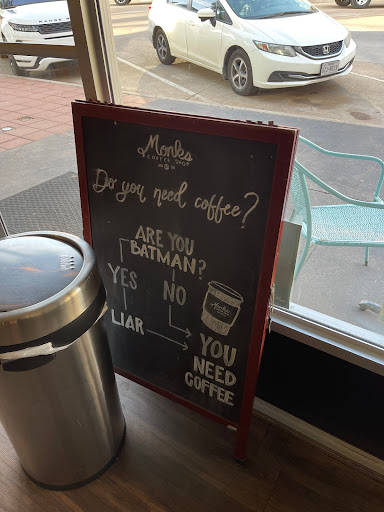 Monks
COFFEE SHOP
Do you need coffee?
ARE YOU
BATMAN?
YES
NO
LIAR
YOU
NEED
COFFEE
Monks